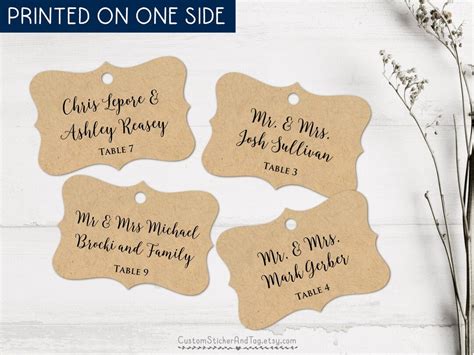 PRINTED ON ONE SIDE
Chris Lepore &
Ashley Reasey
TABLE 7
Mr. & Mrs.
Josh Sullivan
TABLE 3
Mr & Mrs Michael
Brocki and Family
TABLE 9
Mr. & Mrs.
Mark Gerber
TABLE 4
CustomStickerAndTag.etsy.com